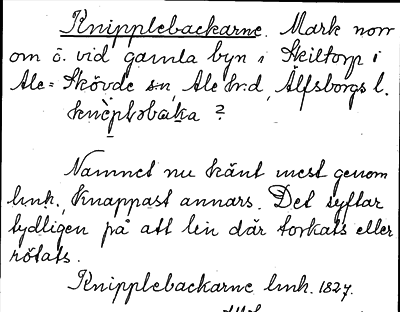 Knipplebackarne. Mark norr
om ö. vid gamla byn i Skiltorp i
Ale-Skövde sn, Ale hrd, Älfsborgs l.
knèpləbàka ?
Namnet nu känt mest genom
lmh., knappast annars. Det syftar
tydligen på att lin där torkats eller
rötats.
Knipplebackarne lmh. 1827.